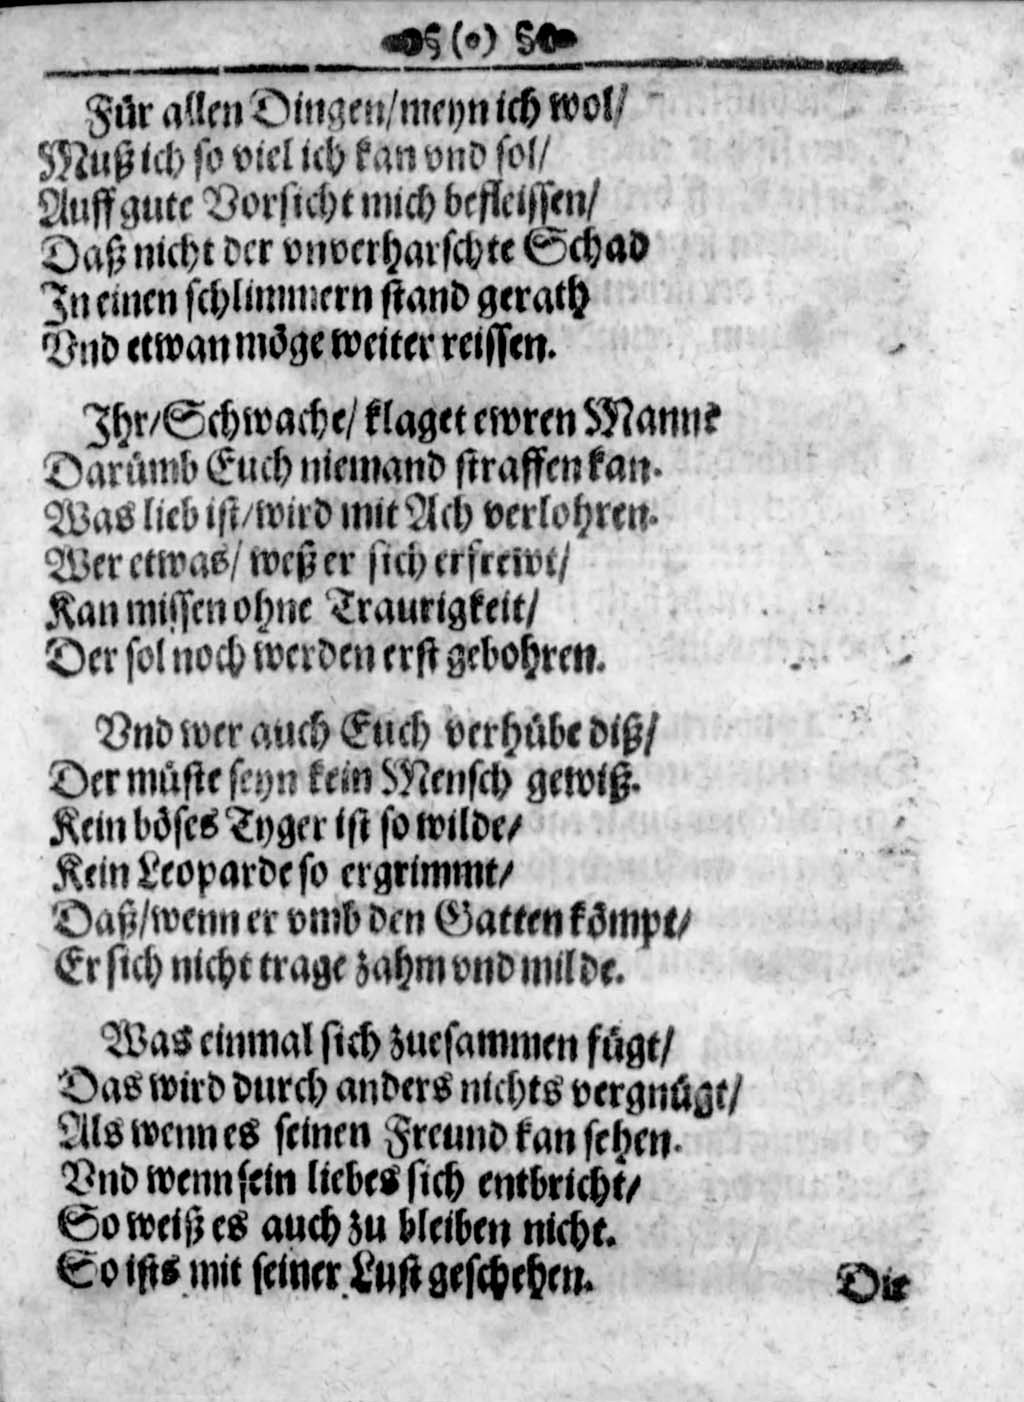 § (o) §
Für allen Dingen/ meyn ich wol/
Muß ich so viel ich kan vnd sol/
Auff gute Vorsicht mich befleissen/
Daß nicht der vnverharschte Schad
In einen schlimmern stand gerath
Vnd etwan möge weiter reissen.
Ihr/ Schwache/ klaget ewren Mann:
Darümb Euch niemand straffen kan.
Was lieb ist/ wird mit Ach verlohren.
Wer etwas/ weß er sich erfrewt/
Kan missen ohne Traurigkeit/
Der sol noch werden erst gebohren.
Vnd wer auch Euch verhübe diß/
Der müste seyn kein Mensch gewiß.
Kein böses Tyger ist so wilde/
Kein Leoparde so ergrimmt/
Daß/ wenn er vmb den Gatten kömpt/
Er sich nicht trage zahm vnd milde.
Was einmal sich zuesammen fügt/
Das wird durch anders nichts vergnügt/
Als wenn es seinen Freund kan sehen.
Vnd wenn sein liebes sich entbricht/
So weiß es auch zu bleiben nicht.
So ists mit seiner Lust geschehen.
Die